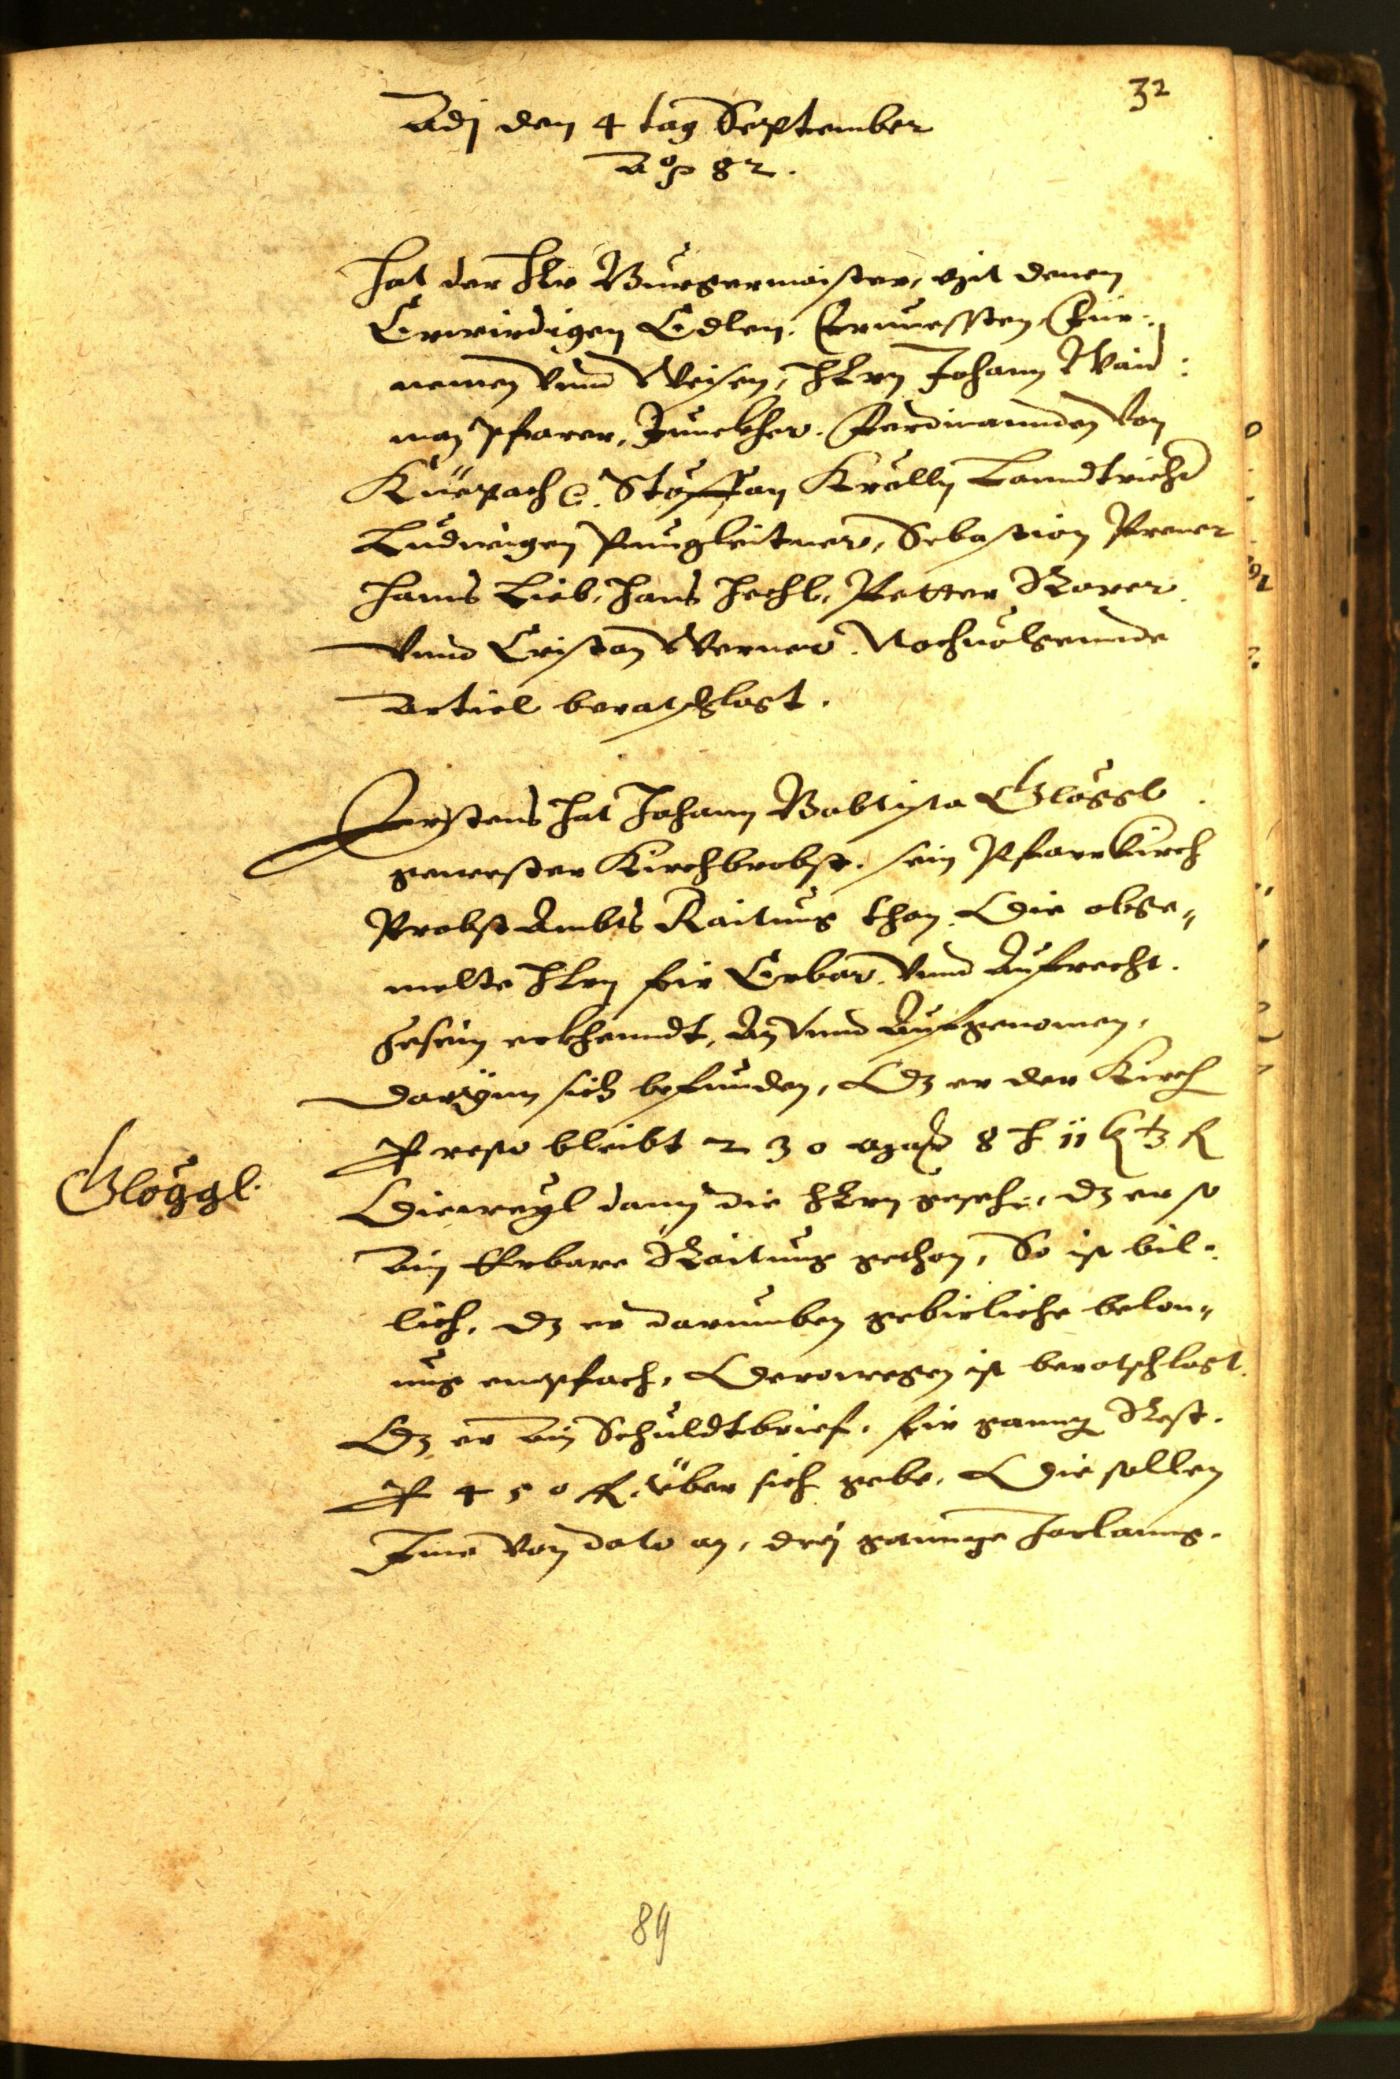 32
Adj den 4 tag September
Ao 82.
Hat der Herr Burgermaister, mit denen
Erwirdigen Edlen, Ernuessten Für-
nemen vnnd Weisen, Herrn Johann Waid:
man Pfarer, Junckher Ferdinannden von
Küepach etc. Stoffan Krölln Lanndtricht
Ludwigen Paugleitner, Sebastian Prener
Hanns Lieb, Hans Hechl, Petter Rorer
vnnd Cristan Werner, Nachuolgennde
Articl beratschlagt.
Erstens hat Johann Babtista Glöggl
gewester Kirchbrobst, sein Pfarrkirch
Probst Ambts Raitung than, Die obge-
melte Herrn für Erbar vnnd Aufrecht
Gesein erkhenndt, An vnnd Aufgenomen,
Darynn sich befunden, Dz er der Kirch
Per resto bleibt 230 8 11
Glöggl.
Dieweyl dann die Herrn gesehen, dz er so
Ain Erbare Raitung gethan, So ist bil-
lich, dz er darumben gebirliche belon-
ung empfach, Derowegen ist beratschlagt
Dz er Ain Schuldtbrief, für gannz Rest
Per 450 fl. über sich gebe, Die sollen
Ime von dato an, drej gannze Jarlanng
89